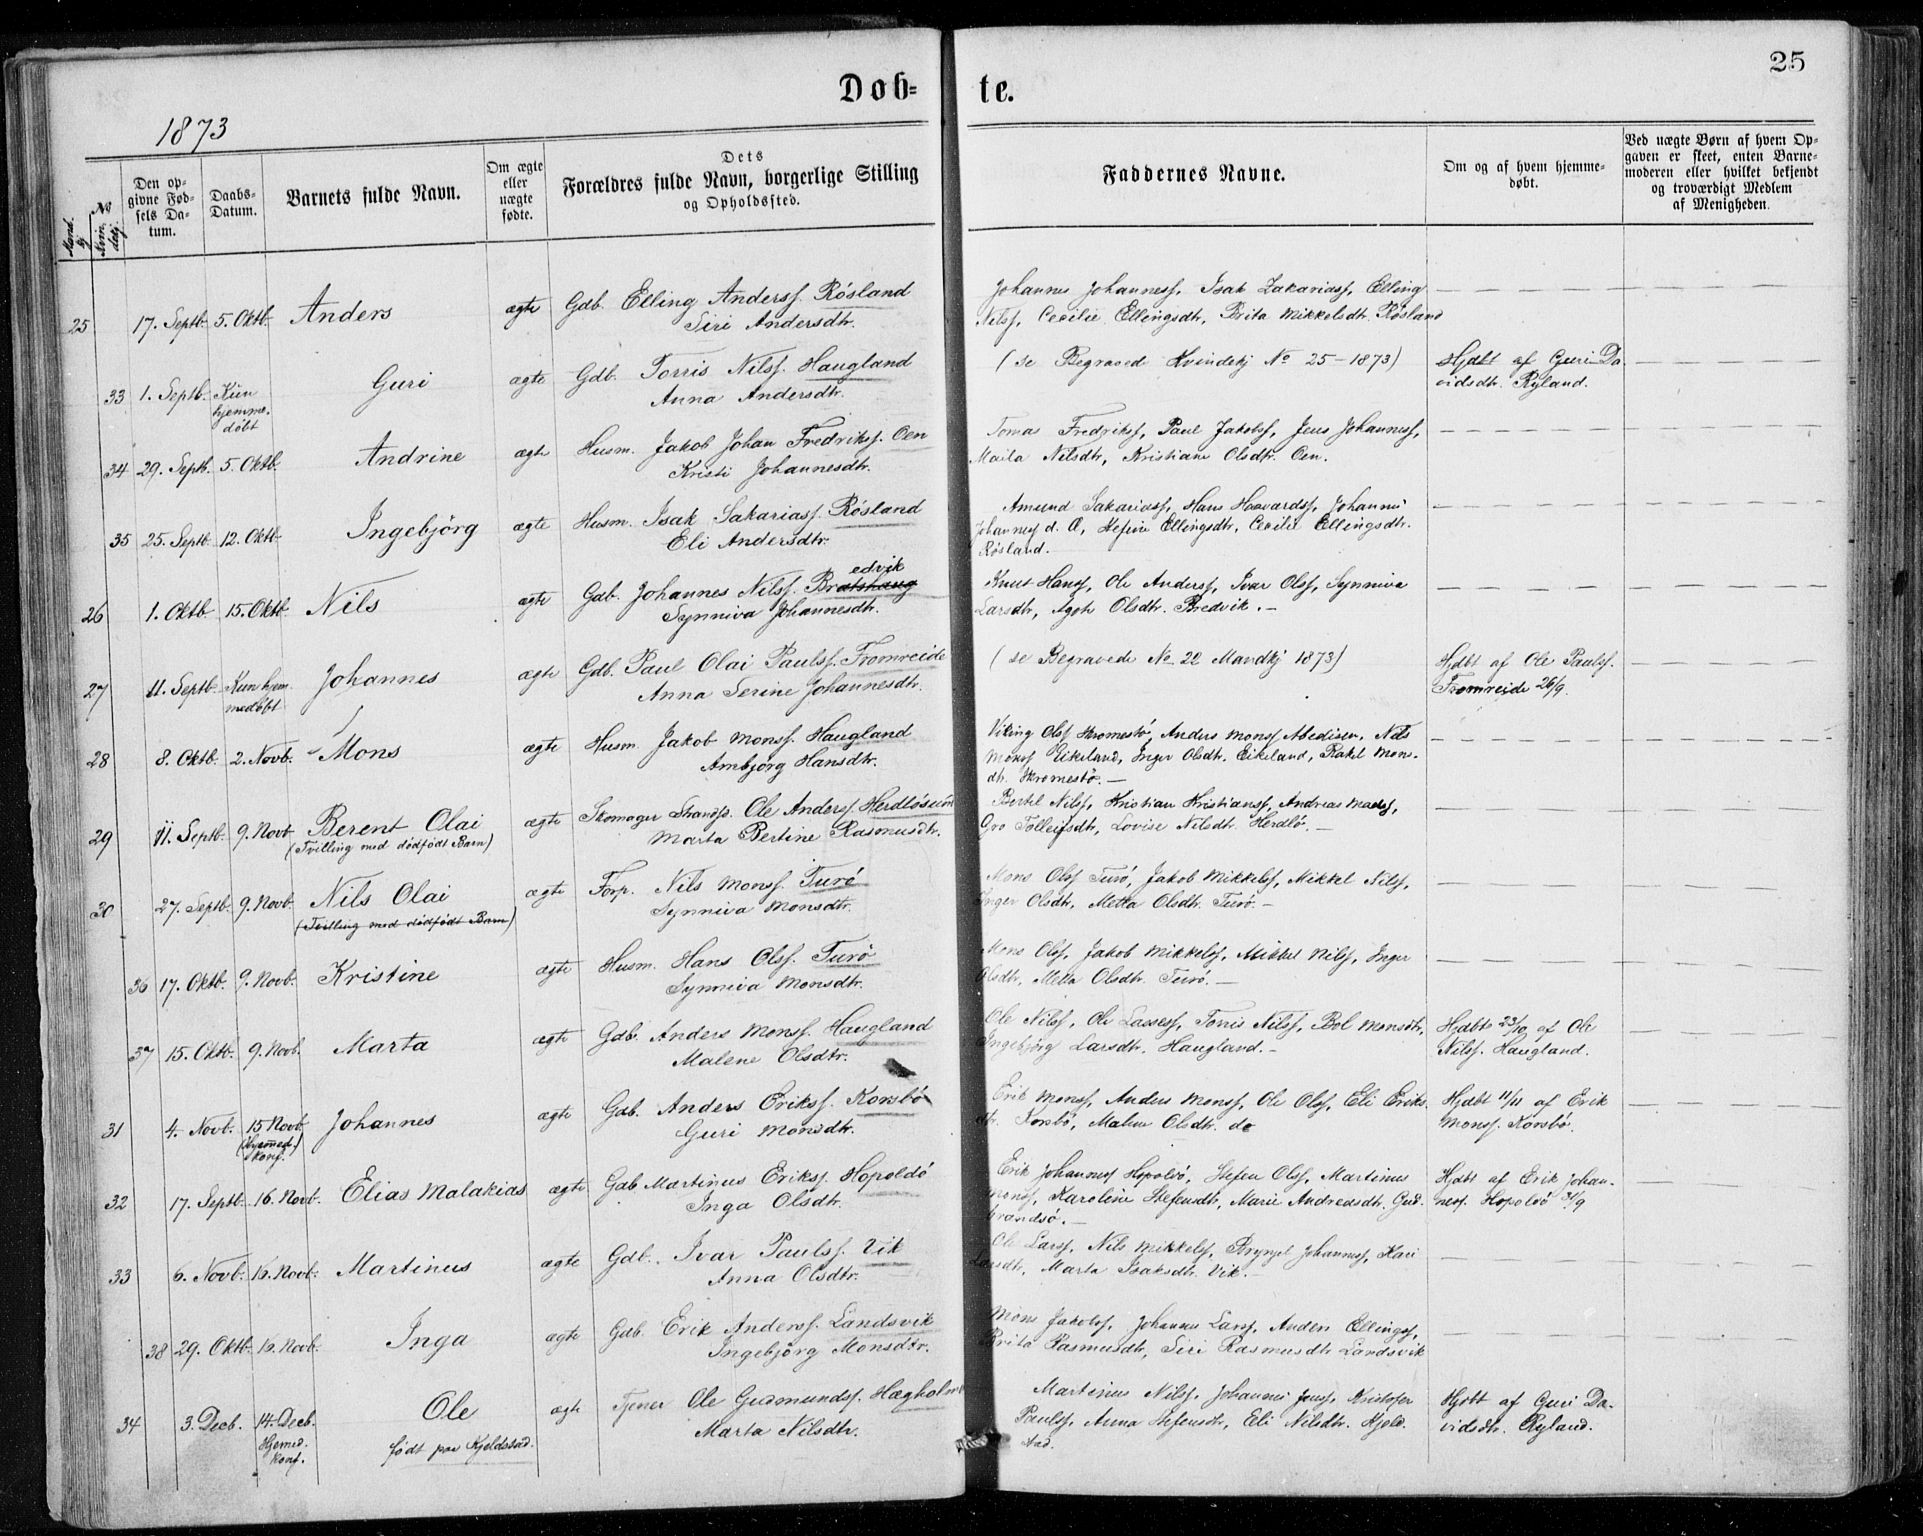 25
Døb-
te.
1873
Mandkj.
No
Kvin
dekj
Den op-
givne Fød-
sels Da-
tum.
Daabs-
Datum.
Barnets fulde Navn.
Om ægte
eller
uægte
fødte.
Dets
Forældres fulde Navn, borgerlige Stilling
og Opholdssted.
Faddernes Navne.
Om og af hvem hjemme-
døbt.
Ved uægte Børn af hvem Op-
gaven er skeet, enten Barne-
moderen eller hvilket bekjendt
og troværdigt Medlem
af Menigheden.
25 17. Septb. 5. Oktb. Anders ægte Gdb. Elling Anderss. Røsland
Siri Andersdtr.
Johannes Johanness, Isak Zakariass, Elling
Nilss, Cecilie Ellingsdtr, Brita Mikkelsdtr. Røsland
33 1. Septb. Kun
hjemme-
døbt
Guri ægte Gdb. Torris Nilss. Haugland
Anna Andersdtr.
(se Begraved Kvindekj No 25-1873)
Hjdbt af Guri Da-
vidsdtr. Ryland.
34 29. Septb. 5. Oktb. Andrine ægte Husm. Jakob Johan Fredrikss. Oen
Kristi Johannesdtr.
Tomas Fredrikss, Paul Jakobs, Jens Johanness,
Maila Nilsdtr, Kristiane Olsdtr. Oen.
35 25. Septb. 12. Oktb. Ingebjörg ægte Husm. Isak Sakariass. Røsland
Eli Andersdtr.
Amund Sakariass, Hans Haavardss, Johannes
Johanness d. Æ, Stefine Ellingsdtr, Cecilie Ellingsdtr.
Røsland.
26 1. Oktb. 15. Oktb. Nils ægte Gdb. Johannes Nilss. Bratshaug
edvik
Synniva Johannesdtr.
Knut Hanss, Ole Anderss, Ivar Olss, Synniva
Larsdtr, Agote Olsdtr. Bredvik.-
27 11. Septb. Kun hjem-
medøbt
Johannes ægte Gdb. Paul Olai Paulss. Fromreide
Anna Serine Johannesdtr.
(se Begravede No 22 Mandkj 1873)
Hjdbt af Ole Paulss.
Fromreide 26/9.
28 8. Oktb. 2. Novb. Mons ægte Husm. Jakob Monss. Haugland
Ambjørg Hansdtr.
Viking Olss Skromestø, Anders Monss Abedisen, Nils
Monss Eikeland, Inger Olsdtr. Eikeland, Rakel Mons-
dtr. Skromestø.-
29 11. Septb. 9. Novb. Berent Olai
(Tvilling med dødfødt Barn)
ægte Skomager Strands. Ole Anderss. Herdløsund
Marta Bertine Rasmusdtr.
Bertel Nilss, Kristian Kristianss, Andreas Madss,
Gro Tolleifsdtr, Lovise Nilsdtr. Herdlø.-
30 27. Septb. 9. Novb. Nils Olai
(Tvilling med dødfødt Barn)
ægte Forp. Nils Monss. Turø
Synniva Monsdtr.
Mons Olss Turø, Jakob Mikkelss, Mikkel Nilss,
Inger Olsdtr, Metta Olsdtr. Turø.-
36 17. Oktb. 9. Novb. Kristine ægte Husm. Hans Olss. Turø
Synniva Monsdtr.
Mons Olss, Jakob Mikkelss, Mikkel Nilss, Inger
Olsdtr, Metta Olsdtr. Turø.-
37 15. Oktb. 9. Novb. Marta ægte Gdb. Anders Monss. Haugland
Malene Olsdtr.
Ole Nilss, Ole Lassess, Torris Nilss, Bol Monsdtr,
Ingebjörg Larsdtr. Haugland.-
Hjdbt 23/10 af Ole
Nilss. Haugland.
31 4. Novb. 15 Novb
(Hjemmed.)
Konf.
Johannes ægte Gdb. Anders Erikss. Korsbø
Guri Monsdtr.
Erik Monss, Anders Monss, Ole Olss, Eli Eriks-
dtr. Korsbø, Malene Olsdtr. do
Hjdbt 11/11 af Erik
Monss. Korsbø.
32 17. Septb. 16. Novb. Elias Malakias ægte Gdb Martinus Erikss. Hopoldø
Inga Olsdtr.
Erik Johanness Hopolsø, Stefen Olss, Martinus
Monss, Karoline Stefensdtr, Marie Andreasdtr. Gud-
brandsø.-
Hjdbt af Erik Johan-
ness. Hopolsø 21/9
33 6. Novb. 16. Novb. Martinus ægte Gdb. Ivar Paulss. Vik
Anna Olsdtr.
Ole Larss, Nils Mikkelss, Brynjel Johanness, Kari
Larsdtr, Marta Isaksdtr. Vik.-
38 29. Oktb. 16. Novb. Inga ægte Gdb. Erik Anderss. Landsvik
Ingebjörg Monsdtr.
Mons Jakobss, Johannes Larss, Anders Ellingss,
Brita Rasmusdtr, Siri Rasmusdtr Landsvik
34 3. Decb. 14. Decb.
Hjemed.
Konf.
Ole
født paa Kjeldstad.
ægte Tjener Ole Gudmundss. Hægholm
Marta Nilsdtr.
Martinus Nilss, Johannes Jenss, Kristofer
Paulss, Anna Stefensdtr, Eli Nilsdtr. Kjeld-
stad.
Hjdbt af Guri Da-
vidsdtr. Ryland.